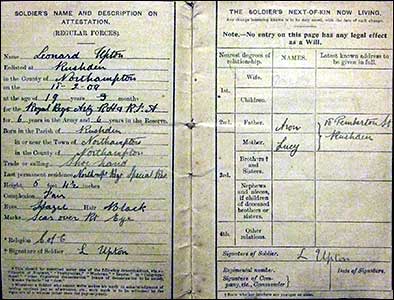 SOLDIER'S NAME AND DESCRIPTION ON
ATTESTATION.
(REGULAR FORCES.)
Name Leonard Upton
Enlisted at Rushden
in the County of Northampton
on the 18-2-08
at the age of 19 years 3 months
for 6 years in the Army & 6 years in the Reserve.
Born in the Parish of Rushden
in or near the Town of Northampton
in the County of Northampton
Trade or calling Shoe hand
Last permanent residence
Height, 5 feet inches
Complexion Fair
Eyes Hazel Hair Black
Marks Scar over Rt Eye
* Religion C of E
* Signature of Soldier L Upton
THE SOLDIER'S NEXT-OF-KIN NOW LIVING.
Note.—No entry on this page has any legal effect
as a Will.
Nearest degrees of
relationship.
NAMES.
Latest known address to
be given in full.
1st.
Wife.
Children.
2nd.
Father. Aron
Mother. Lucy
15 Pemberton St
Rushden
3rd.
Brothers †
and
Sisters.
Nephews and
nieces, if
children of
deceased
brothers or
sisters.
4th.
Other
relations.
Signature of Soldier. L Upton
Regimental number. Date of Signature.
Signature of Com-
pany, etc., Commander